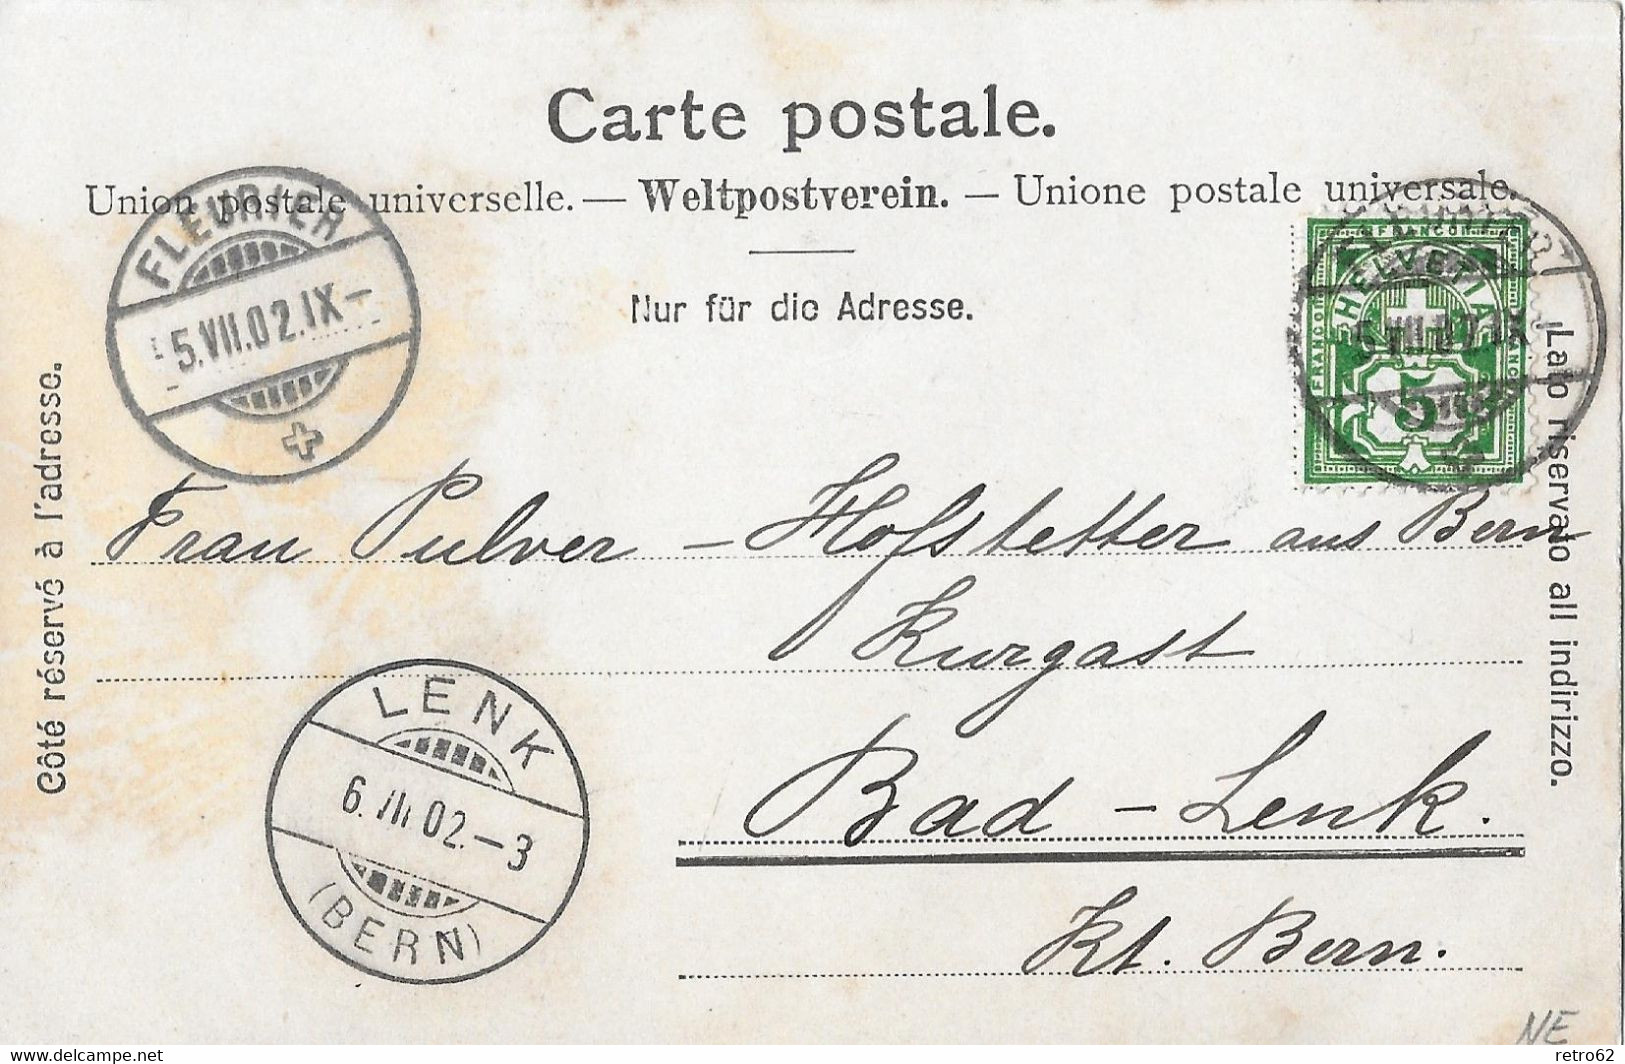 Carte postale.
Union postale universelle. — Weltpostverein. — Unione postale universale.
Nur für die Adresse.
Côté réservé à l'adresse.
Lato riservato all indirizzo.
FLEURIER
5.VII.02.IX-
FRANCO
HELVETIA
FRANCO
5
5.VII.02.IX
Frau Pulver – Hofstetter aus Bern
Kurgast
Bad – Lenk.
Kt. Bern.
LENK
6.VII.02.-3
(BERN)
NE
www.delcampe.net
retro62